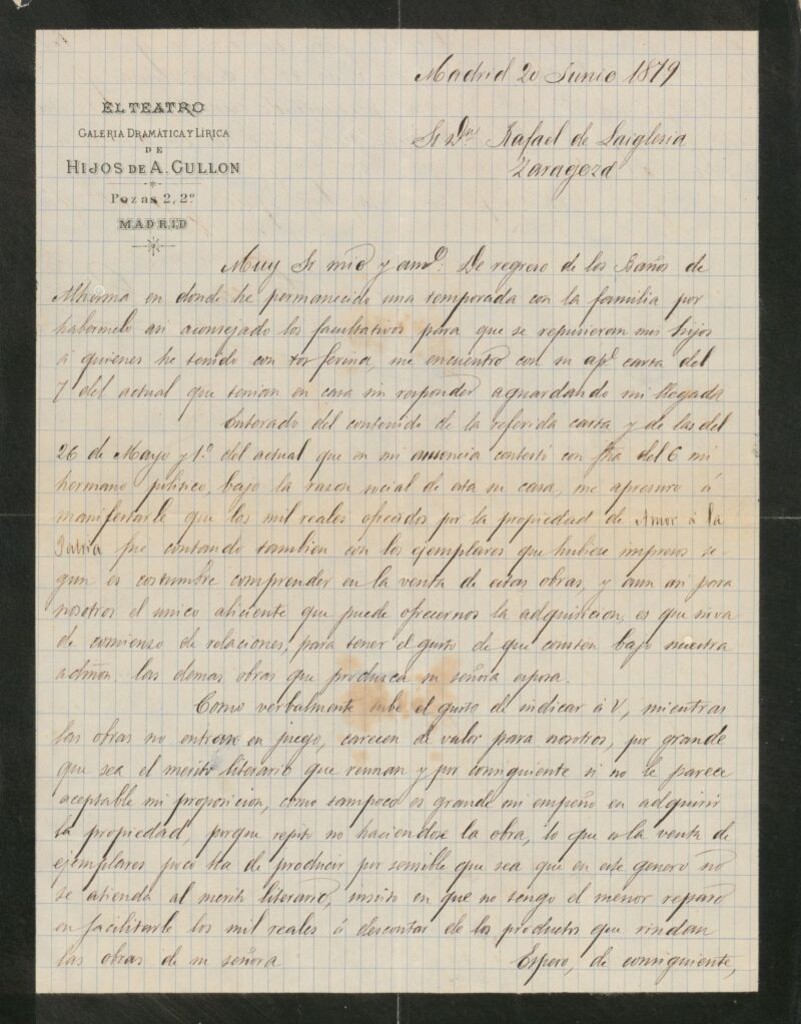 Madrid 20 Junio 1879
EL TEATRO
GALERIA DRAMÁTICA Y LÍRICA
DE
HIJOS DE A. GULLON
Pozas 2, 2º
MADRID
Sr Dn Rafael de Laiglesia
Zaragoza
Muy Sr mio y amº: De regreso de los Baños de
Alhama en donde he permanecido una temporada con la familia por
habermelo asi aconsejado los facultativos para que se repusieran mis hijos
á quienes he tenido con tos ferina, me encuentro con su apª carta del
7 del actual que tenian en casa sin responder aguardando mi llegada
Enterado del contenido de la referida carta y de las del
26 de Mayo y 1º del actual que en mi ausencia contestó con fha del 6 mi
hermano politico, bajo la razon social de esta su casa, me apresuro á
manifestarle que los mil reales ofrecidos por la propiedad de Amor á la
Patria fué contando tambien con los ejemplares que hubiese impresos se-
gun es costumbre comprender en la venta de estas obras, y aun asi para
nosotros el unico aliciente que puede ofrecernos la adquisicion, es que sirva
de comienzo de relaciones, para tener el gusto de que consten bajo nuestra
admon. las demas obras que produzca su señora esposa.
Como verbalmente tube el gusto de indicar á V, mientras
las obras no entran en juego, carecen de valor para nosotros, por grande
que sea el merito literario que reunan y por consiguiente si no le parece
aceptable mi proposicion, como tampoco es grande mi empeño en adquirir
la propiedad, porque repito no haciendose la obra, lo que es la venta de
ejemplares poco ha de producir por sensible que sea que en este genero no
se atienda al merito literario, insisto en que no tengo el menor reparo
en facilitarle los mil reales á descontar de los productos que rindan
las obras de su señora Espero, de consiguiente,